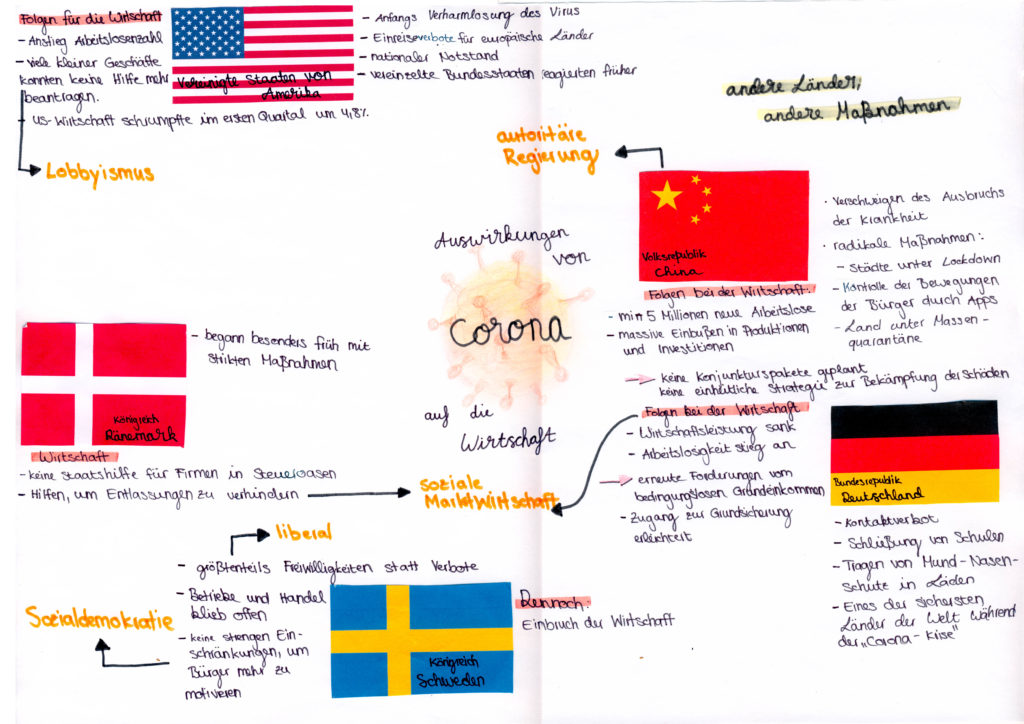 Folgen für die Wirtschaft
- Anstieg Arbeitslosenzahl
- Viele kleiner Geschäfte
konnten keine Hilfe mehr
beantragen.
- US-Wirtschaft schrumpfte im ersten Quartal um 4,8%
Lobbyismus
Vereinigte Staaten von
Amerika
- Anfangs Verharmlosung des Virus
- Einreiseverbote für europäische Länder
- nationaler Notstand
- vereinzelte Bundesstaaten reagierten früher
andere Länder,
andere Maßnahmen
autoritäre
Regierung
Volksrepublik
China
· Verschweigen des Ausbruchs
der Krankheit
· radikale Maßnahmen:
- Städte unter Lockdown
- Kontrolle der Bewegungen
der Bürger durch Apps
- Land unter Massen-
quarantäne
Folgen bei der Wirtschaft:
- min 5 Millionen neue Arbeitslose
- massive Einbußen in Produktionen
und Investitionen
keine Konjunkturspakete geplant
keine einheitliche Strategie zur Bekämpfung der Schäden
Auswirkungen
von
Corona
auf die
Wirtschaft
Königreich
Dänemark
- begann besonders früh mit
strikten Maßnahmen
Wirtschaft
- keine Staatshilfe für Firmen in Steueroasen
- Hilfen, um Entlassungen zu verhindern
soziale
Marktwirtschaft
Folgen bei der Wirtschaft
- Wirtschaftsleistung sank
- Arbeitslosigkeit stieg an
erneute Forderungen vom
bedingungslosen Grundeinkommen
- Zugang zur Grundsicherung
erleichtert
Bundesrepublik
Deutschland
- Kontaktverbot
- Schließung von Schulen
- Tragen von Mund-Nasen-
schutz in Läden
- Eines der sichersten
Länder der Welt während
der „Corona-krise"
liberal
- größtenteils Freiwilligkeiten statt Verbote
- Betriebe und Handel
blieb offen
- keine strengen Ein-
schränkungen, um
Bürger mehr zu
motivieren
Sozialdemokratie
Königreich
Schweden
Dennoch:
Einbruch der Wirtschaft